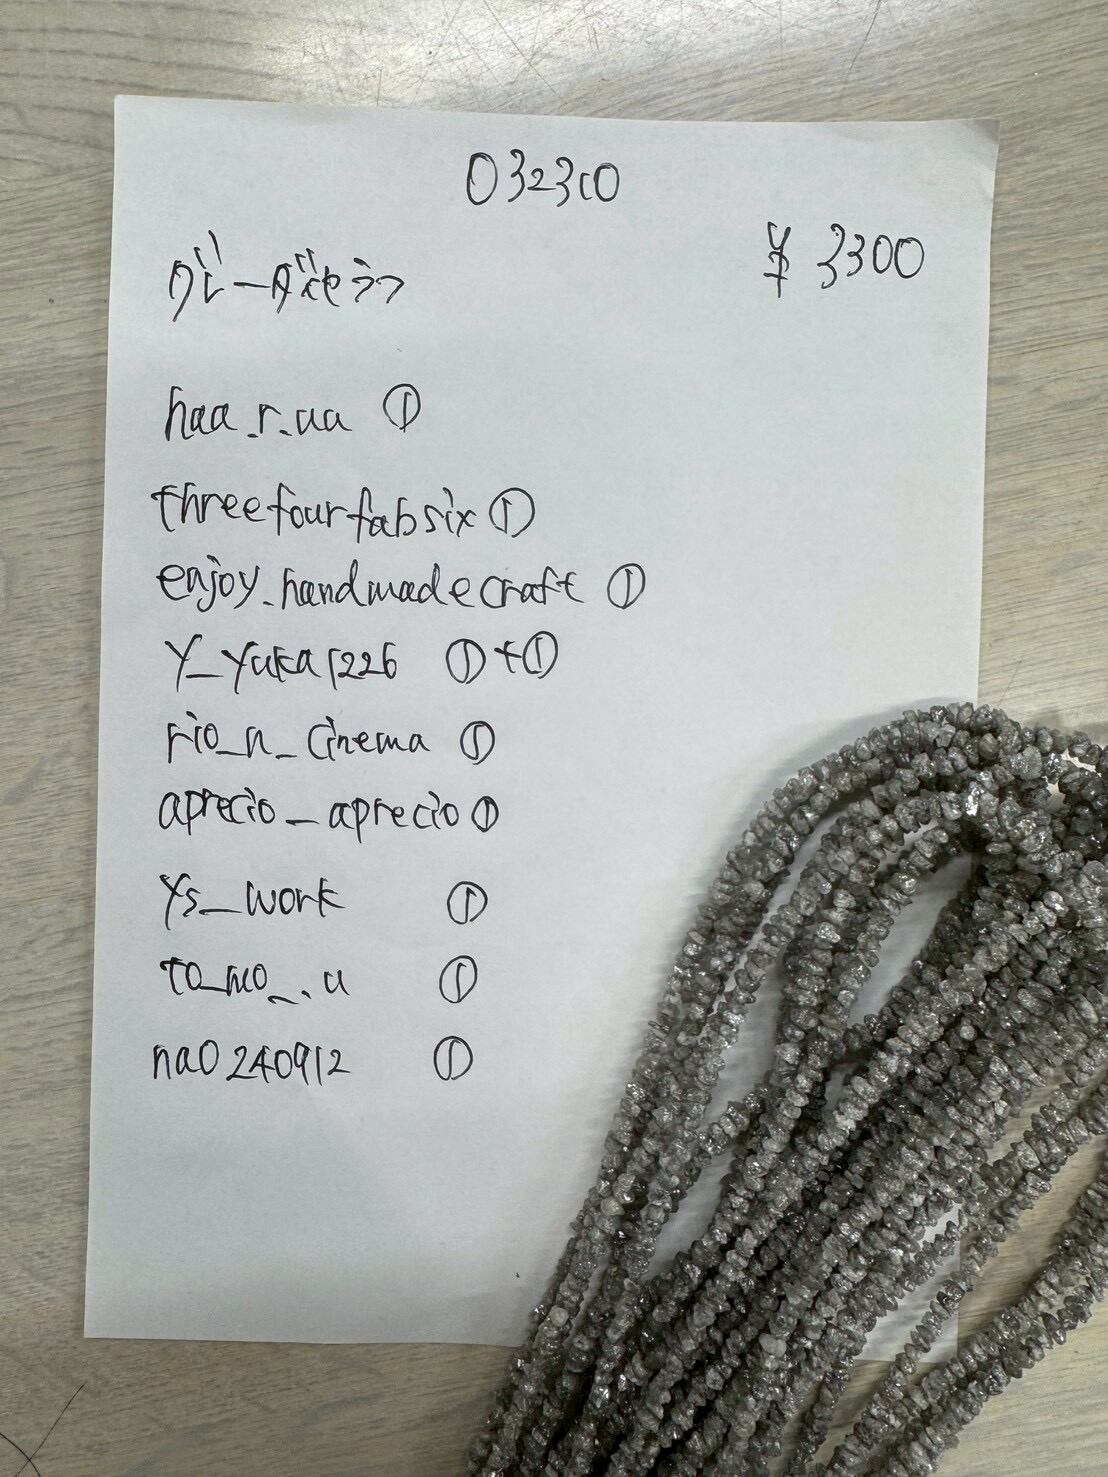 032310
グレーダイヤラフ
¥3300
haa_r_aa ①
threefourfabsix ①
enjoy_handmadecraft ①
y_yuka1226 ①+①
rio_n_cinema ①
aprecio_aprecio ①
ys_work ①
to_mo_.u ①
nao240912 ①